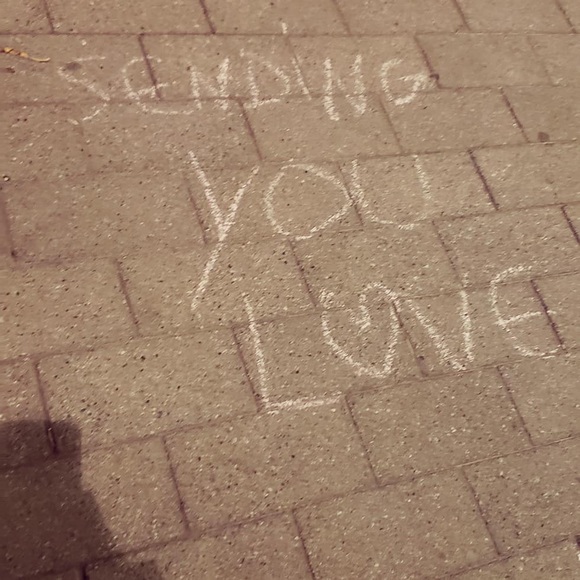 SENDING
YOU
LOVE